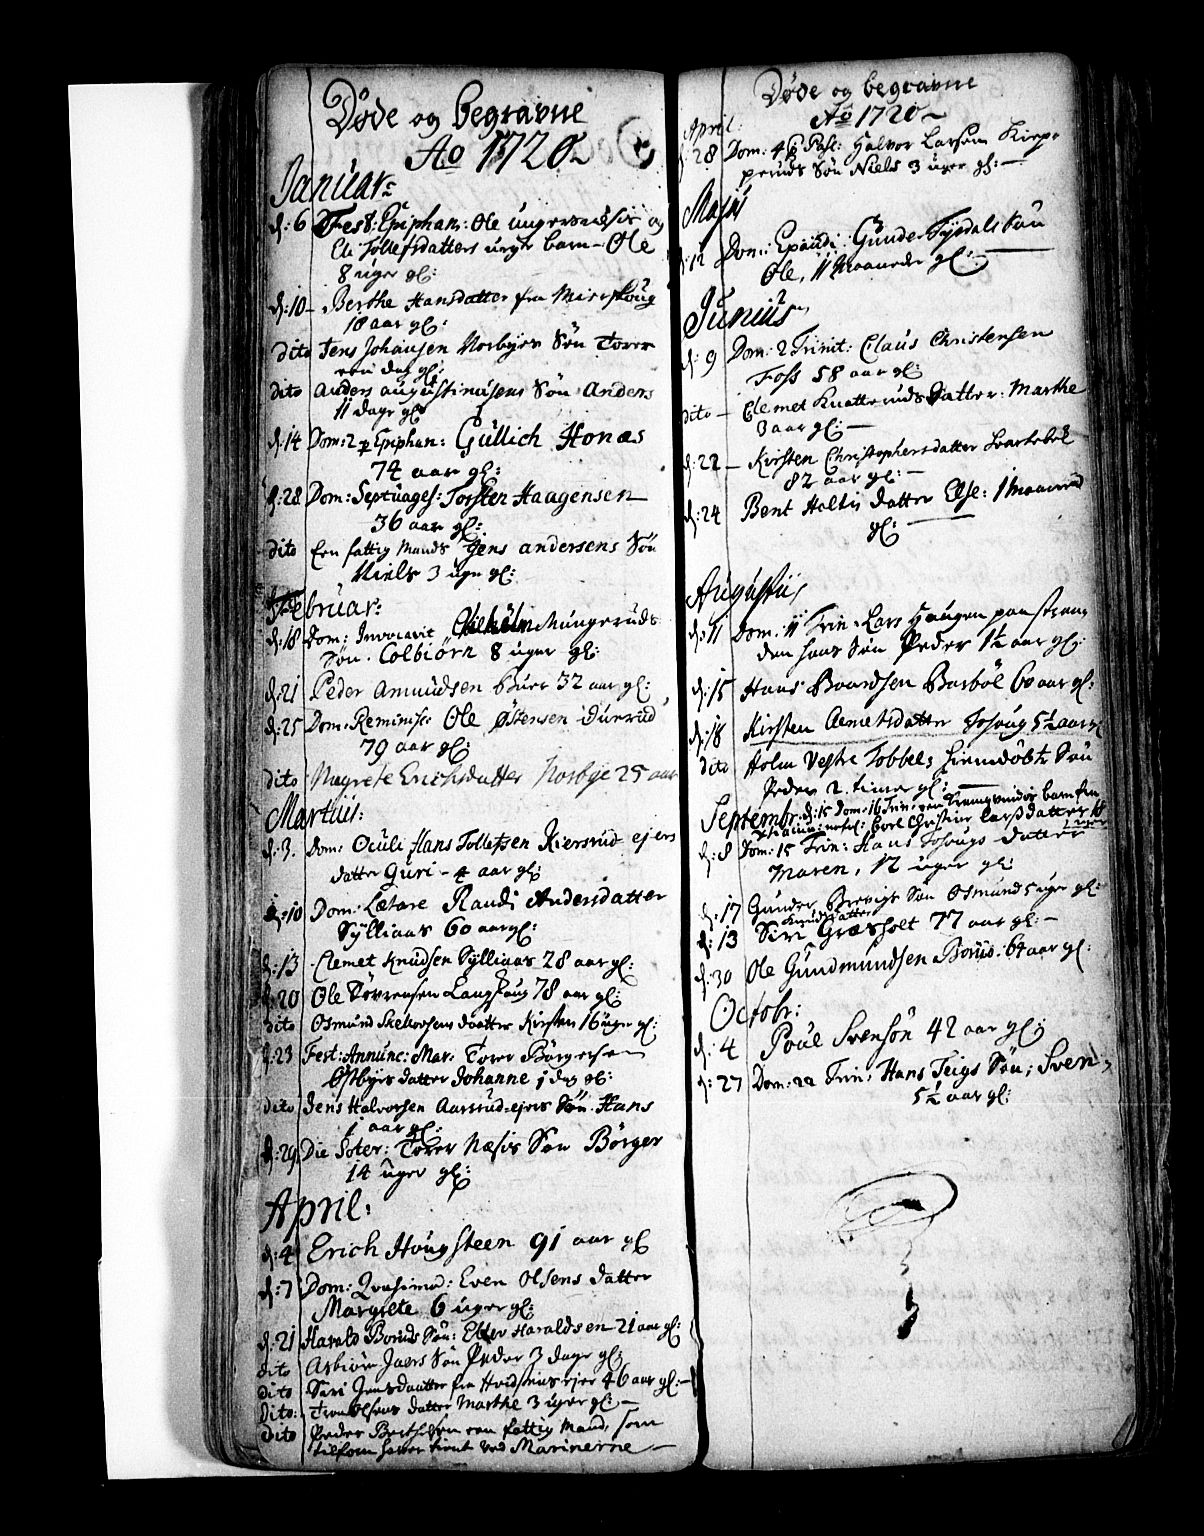 Døde og begravne
Ao 1720
Januar:
d: 6 Fest: Epiphan: Ole og
Tollefsdatters barn - Ole
8 uger gl:
d: 10 - Berthe Hansdatter fra
18 aar gl:
dito Jens Johansen Norbyes Søn Torer
een dag gl:
dito Anders Augustinusens Søn Anders
11 dage gl:
d: 14 Dom: 2 p Epiphan: Gullich Honæs
74 aar gl:
d: 28 Dom: Septuages: Torsten Haagensen
36 aar gl:
dito Een fattig Mands Jens Andersens Søn
Niels 3 uger gl:
Februar:
d: 18 Dom: Invocavit Mungeruds
Søn. Colbiörn 8 uger gl:
d: 21 Peder Amundsen Buer 32 aar gl:
d: 25 Dom: Reminisc: Ole Østensen Duerud
79 aar gl:
dito Magrete Erichsdatter Norbye 25 aar
Martius:
d: 3. Dom: Oculi Hans Tollefsen Kiersrud ejers
datter Guri - 4 aar gl:
d: 10 Dom: Lætare Randi Andersdatter
Sylliaas 60 aar gl:
d: 13 Clemet Knudsen Sylliaas 28 aar gl:
d: 20 Ole Sörrensen Langfoug 78 aar gl:
dito Osmund datter Kirsten 16 uger gl:
d: 23 Fest: Annunc: Mar: Torer Börgersen
Østbyes datter Johanne 1 dag gl:
dito Jens Halvorsen Aarsrud-ejers Søn. Hans
1 aar gl:
d: 29 Die Soter: Torer Næsis Søn Börger
14 uger gl:
April:
d: 4 Erich Hougsteen 91 aar gl
d: 7 Dom: Qvasimod: Even Olsens datter
Margrete 6 uger gl:
d: 21 Harald Boruds Søn: Haraldsen 21 aar gl:
dito Asbiörn Jaers Søn Peder 3 dage gl:
dito Siri Jensdaatter fra ejer 46 aar gl:
dito: Olsens datter Marthe 3 uger gl:
dito Peder een fattig Mand, som
tilforn haver tient ved Marinerne
Døde og begravne
Ao 1720
April:
d: 28 Dom: 4 p Pasc: Halvor Larsen
Søn Niels 3 uger gl:
Majus
d: 12 Dom: Exaudi: Gunder Tysdals Søn
Ole, 11 Maaneder gl:
Junius
d: 9 Dom: 2 Trinit: Claus Christensen
Foss 58 aar gl:
dito - Clemet Knatteruds Datter: Marthe
3 aar gl:
d: 22 - Kirsten Christophersdatter Svartebek
82 aar gl:
d: 24 Bent Holtis datter Else: 1 Maaned
gl:
Augustus
d: 11 Dom: 11 Trin: Lars Haugen paa stran
den hans Søn Peder 1½ aar gl:
d: 15 Hans Baardsen Barböl 60 aar gl:
d: 18 Kirsten datter Fosoug 5½ aar gl
dito Holm Vestre Tobbel: hiemdöbt Søn
Peder 2 timer gl:
Septembr: d: 15 Dom: 16 Trin: barn fra
Carl Christine Larsdatter
1 uger
d: 8 Dom: 15 Trin: Hans Fosougs datter
Maren, 12 uger gl:
d: 17 Gunder Brevigs Søn Osmund 5 uger gl:
Knudsdatter
d: 13 Siri Græsholt 77 aar gl:
d: 30 Ole Gundmundsen Borud. 64 aar gl:
Octobr:
d: 4 Poul Svensön 42 aar gl:
d: 27 Dom: 22 Trin: Hans Teigs Søn; Sven
5½ aar gl: